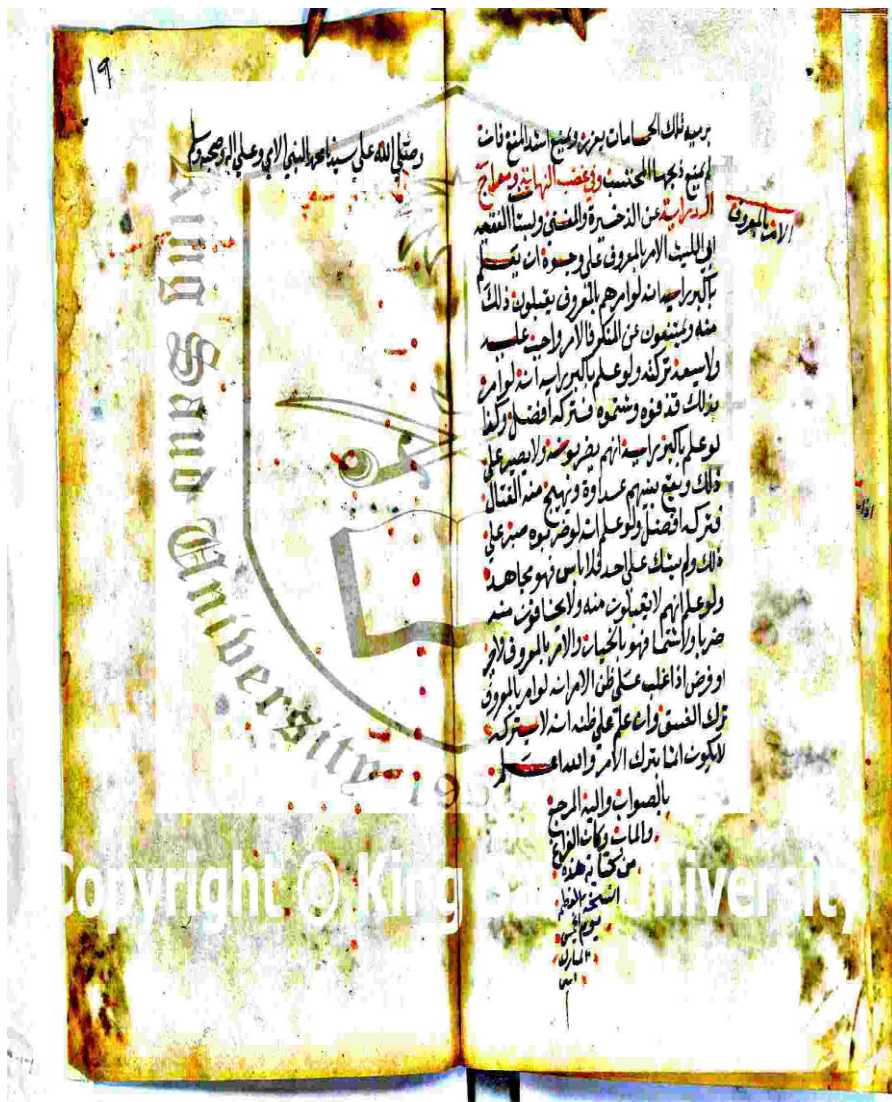 برميه تلك الحمامات يعزر ويمنع اشد المنع فان
لم يمنع ذبحها المحتسب وفي غصب النهاية ومعراج
الدراية عن الذخيرة والمغني ولبستان الفقيه
ابي الليث الامر بالمعروف علي وجوه ان يعلم
باكبر رايه انه لو امرهم بالمعروف يقبلون ذلك
منه ويمتنعون عن المنكر فالامر واجب عليه
ولا يسعه تركه ولو علم باكبر رايه انه لو امر
بذلك قذفوه وشتموه فتركه افضل وكذا
لو علم باكبر رايه انهم يضربونه ولا يصبر علي
ذلك ويقع بينهم عداوة ويهيج منه القتال
فتركه افضل ولو علم انه لو ضربوه صبر علي
ذلك ولم يشك علي احد فلا باس فهو مجاهد
ولو علم انهم لا يقبلون منه ولا يخافون منه
ضربا ولا شتما فهو بالخيار والامر بالمعروف
او فرض اذا غلب علي ظن الامر انه لو امر بالمعروف
ترك الفسق وان علم علي ظنه انه لا يتركه
لا يكون اثما بترك الامر والله اعلم
بالصواب واليه المرجع
والماب وكان الفراغ
من كتابة هذه
النسخة
يوم
المبارك
الامر بالمعروف
١٩
وصلي الله علي سيدنا محمد النبي الامي وعلي اله وصحبه وسلم
King Saud University
Copyright © King Saud University